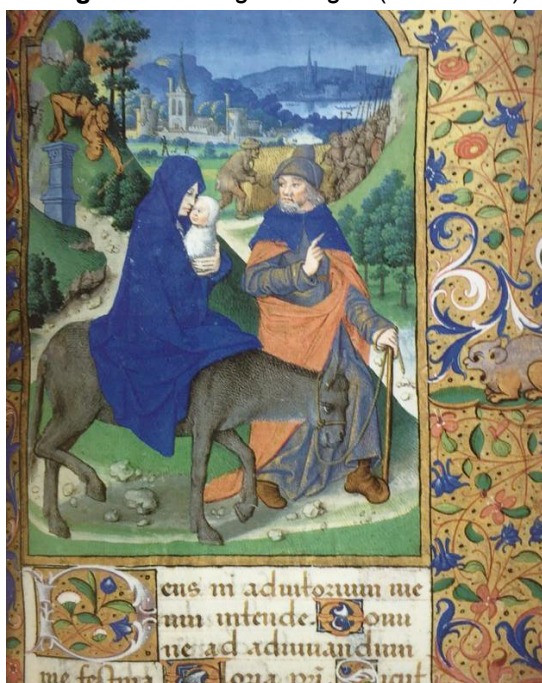 Deus in adiutorium me
um intende. Domi
ne ad adiuuandum
me festina Gloria pri. Sicut